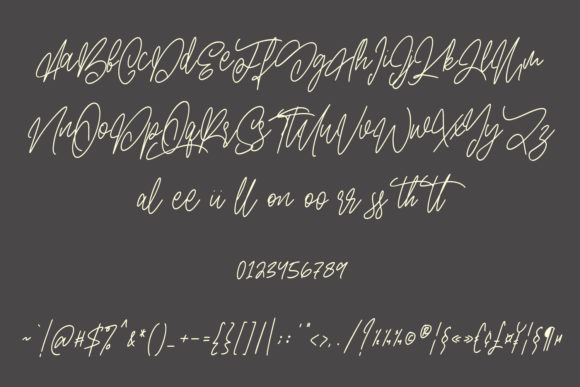 AaBbCcDdEeFfGgHhIiJjKkLlMm
NnOoPpQqRrSsTtUuVvWwXxYyZz
al ee ii ll on oo rr ss th tt
0123456789
~`!@#$%^&*()_+-={}[]||::'"<>,./?